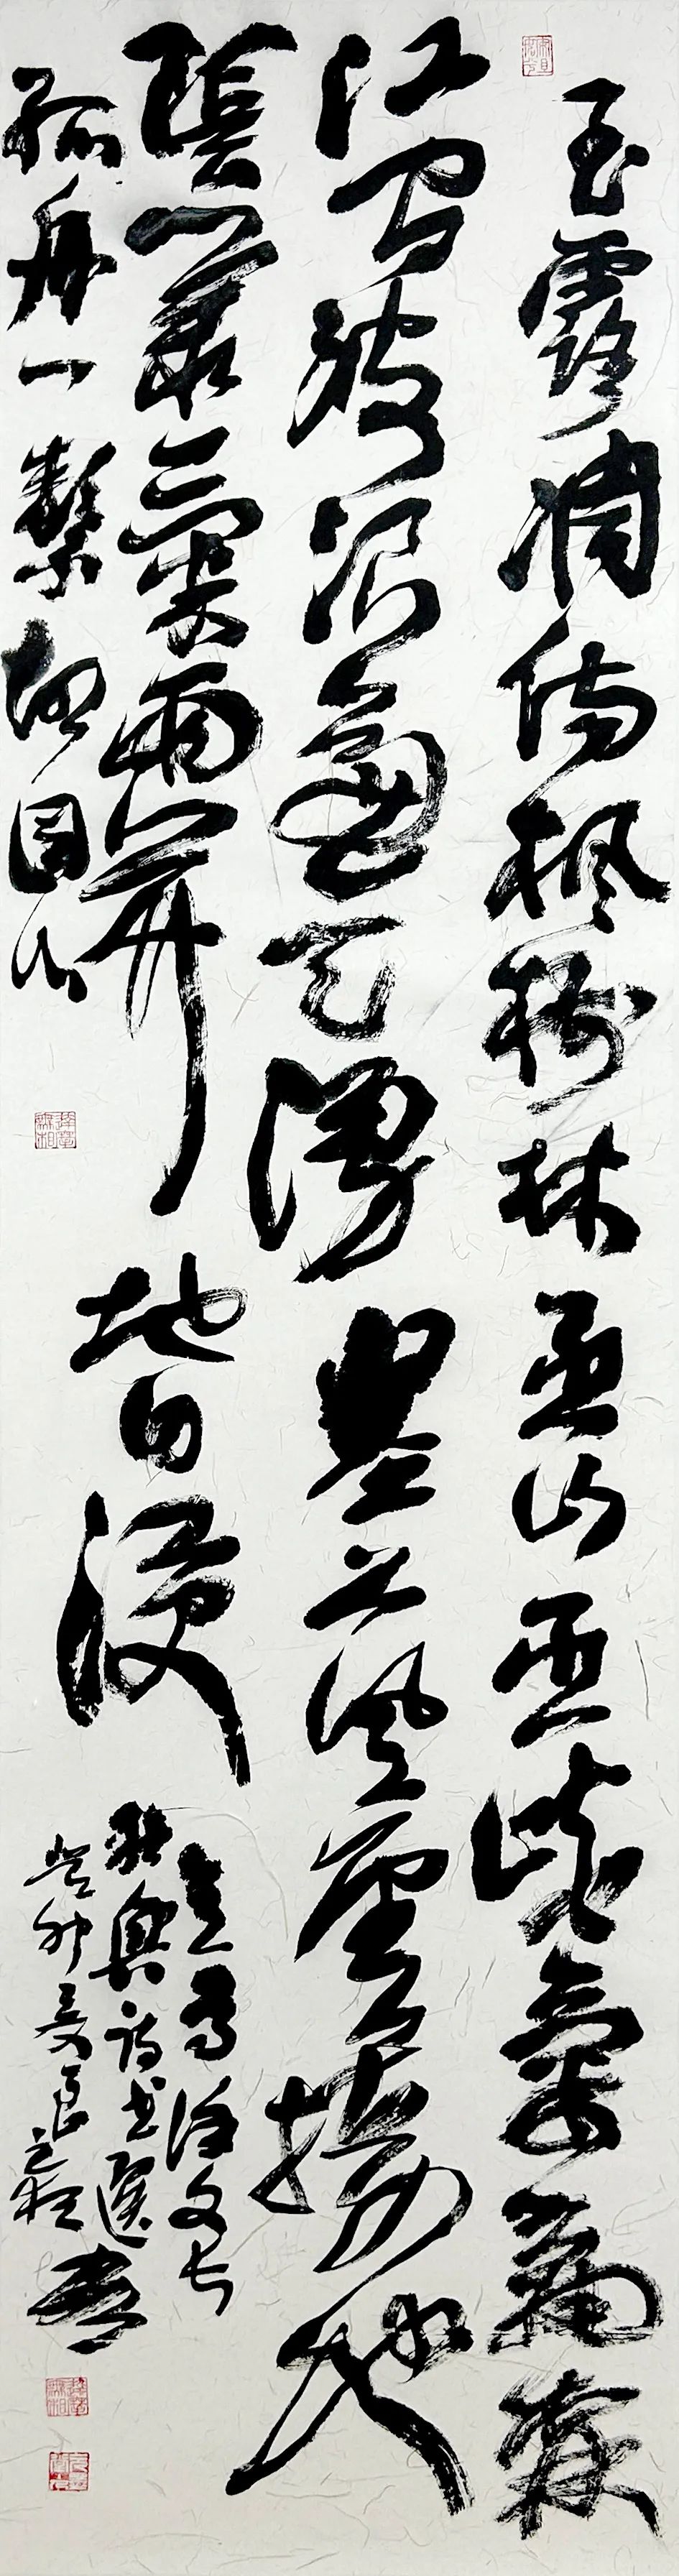 玉露凋傷楓樹林巫山巫峽氣蕭森
江間波浪兼天湧塞上風雲接地
陰叢菊兩開他日淚
孤舟一繫故園心
意寫徐文長
秋興詩
癸卯夏